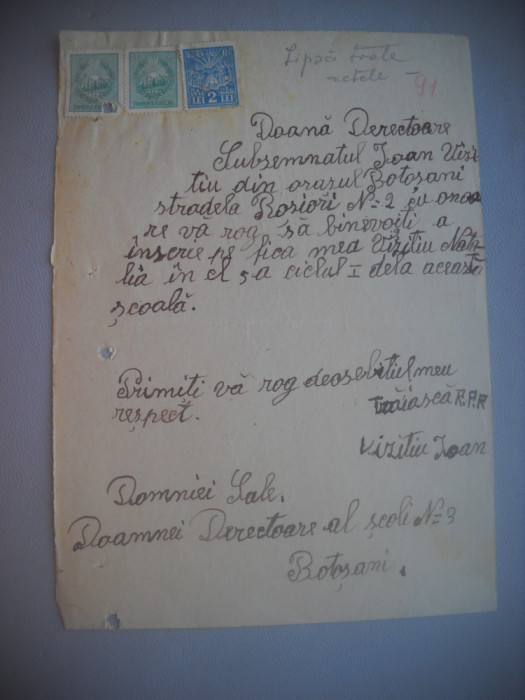 Lipsă toate
actele -
91
2
Doană Derectoare
Subsemnatul Ioan Vizi
tiu din orașul Botoșani
stradela Roșiori N=2 cu onoa
re vă rog, să binevoiți a
înscrie pe fica mea Vizitiu Nata
lia în cl 5-a ciclul I dela această
școală.
Primiți vă rog deosebitul meu
respect.
Trăiască R.P.R
Vizitiu Ioan
Domniei Sale.
Doamnei Derectoare al școli N=3
Botoșani.